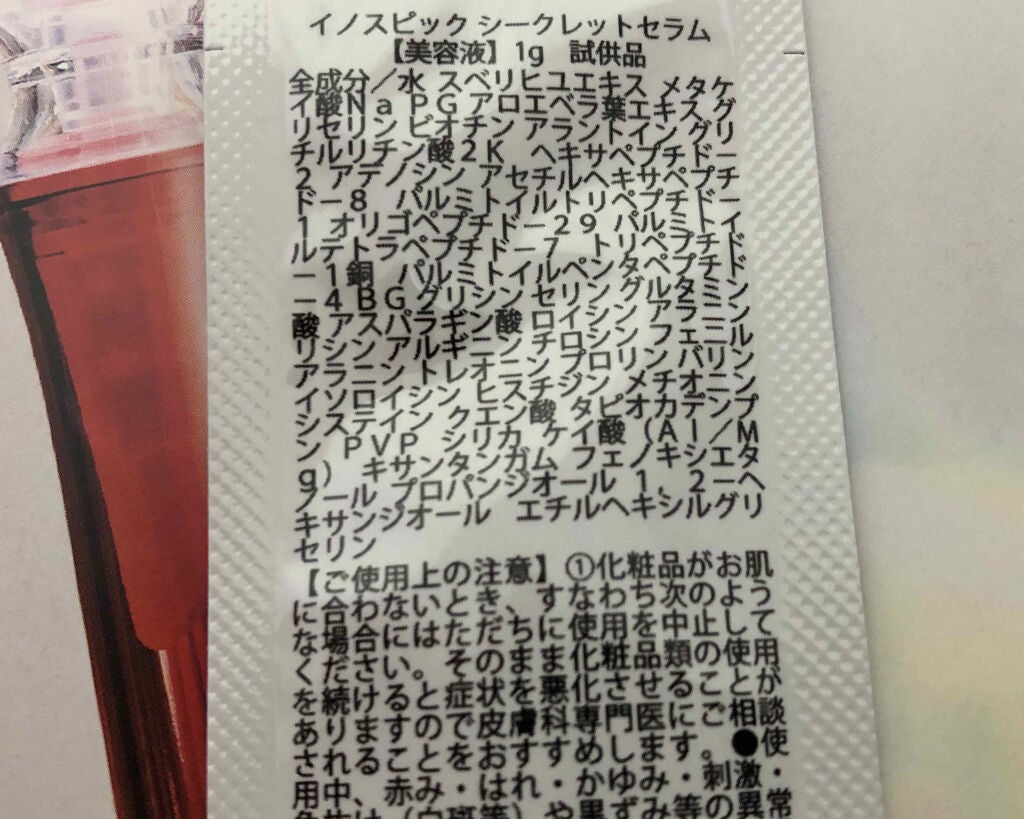 イノスピック シークレットセラム
【美容液】1g 試供品
全成分／水 スベリヒユエキス メタケ
イ酸Na PG アロエベラ葉エキス グ
リセリン ビオチン アラントイン グリ
チルリチン酸2K ヘキサペプチド－
2 アデノシン アセチルヘキサペプチ
ド－8 パルミトイルトリペプチド－
1 オリゴペプチド－29 パルミトイ
ルテトラペプチド－7 トリペプチド
－1銅 パルミトイルペンタペプチド
－4 BG グリシン セリン グルタミン
酸 アスパラギン酸 ロイシン アラニン
リシン アルギニン チロシン フェニル
アラニン トレオニン プロリン バリン
イソロイシン ヒスチジン メチオニン
システイン クエン酸 タピオカデンプ
ン PVP シリカ ケイ酸（Aｌ／M
g） キサンタンガム フェノキシエタ
ノール プロパンジオール 1，2－ヘ
キサンジオール エチルヘキシルグリ
セリン
【ご使用上の注意】①化粧品がお肌
に合わないとき、すなわち次のよう
な場合には、ただちに使用を中止して
ください。そのまま化粧品類の使用
を続けると症状を悪化させることが
ありますので皮膚科専門医にご相談
されることをおすすめします。●使
用中、赤み・はれ・かゆみ・刺激・